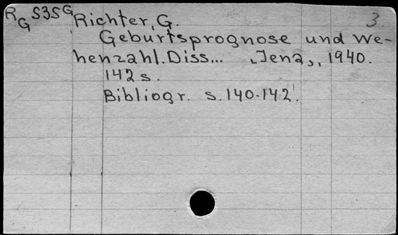 RG S3SG Richter, G. 3
Geburtsprognose und We-
henzahl. Diss... „Jena„, 1940.
142 s.
Bibliogr. s. 140-142.